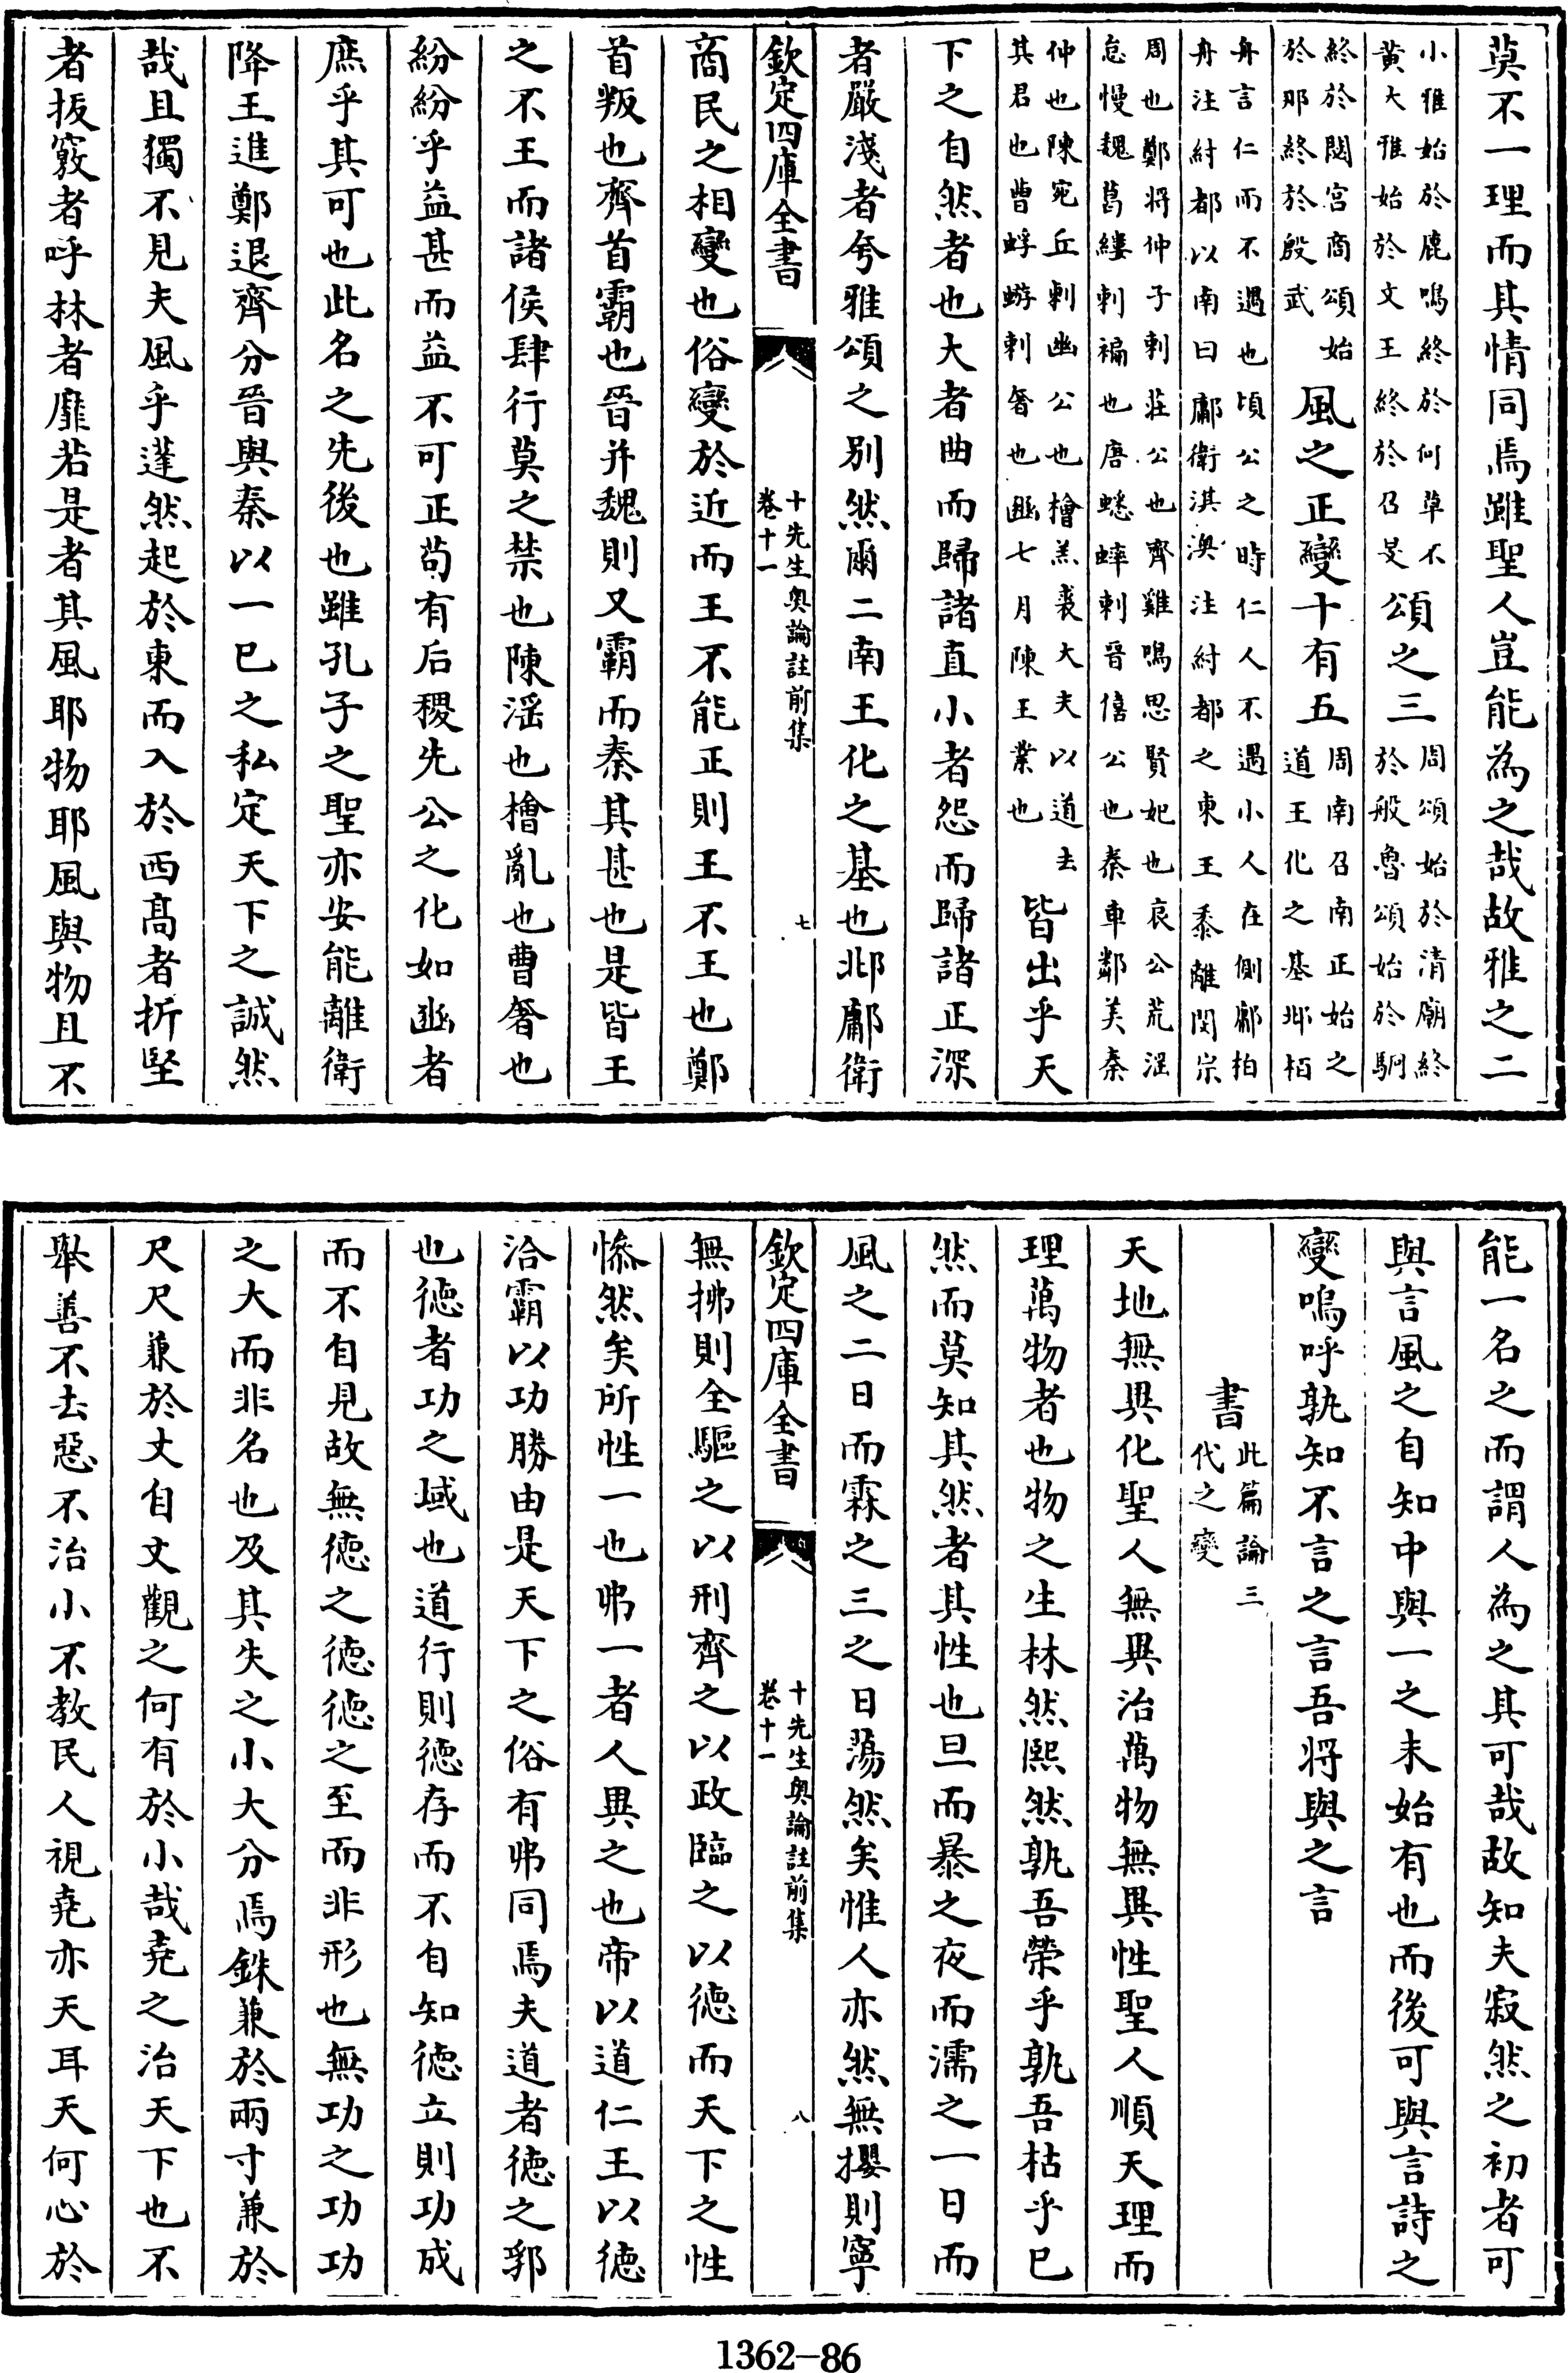 莫不一理而其情同焉雖聖人豈能為之哉故雅之二
小雅始於鹿鳴終於何草不
黃大雅始於文王終於召旻
頌之三
周頌始於清廟終
於般魯頌始於駉
終於閟宮商頌始
於那終於殷武
風之正變十有五
周南召南正始之
道王化之基邶栢
舟言仁而不遇也頃公之時仁人不遇小人在側鄘柏
舟注紂都以南曰鄘衛淇澳注紂都之東王黍離閔宗
周也鄭將仲子刺莊公也齊雞鳴思賢妃也哀公荒淫
怠慢魏葛縷刺褊也唐蟋蟀刺晉僖公也秦車鄰美秦
仲也陳宛丘刺幽公也檜羔裘大夫以道去
其君也曹蜉蝣刺奢也豳七月陳王業也
皆出乎天
下之自然者也大者曲而歸諸直小者怨而歸諸正深
者嚴淺者兮雅頌之別然爾二南王化之基也邶鄘衛
欽定四庫全書
十先生奥論註前集
卷十一
七
商民之相變也俗變於近而王不能正則王不王也鄭
首叛也齊首霸也晉并魏則又霸而秦其甚也是皆王
之不王而諸侯肆行莫之禁也陳淫也檜亂也曹奢也
紛紛乎益甚而益不可正苟有后稷先公之化如豳者
庶乎其可也此名之先後也雖孔子之聖亦安能離衛
降王進鄭退齊分晉與秦以一已之私定天下之誠然
哉且獨不見夫風乎蓬然起於東而入於西高者折堅
者拔竅者呼林者靡若是者其風耶物耶風與物且不
能一名之而謂人為之其可哉故知夫寂然之初者可
與言風之自知中與一之未始有也而後可與言詩之
變嗚呼孰知不言之言吾將與之言
書
此篇論三
代之變
天地無異化聖人無異治萬物無異性聖人順天理而
理萬物者也物之生林然熙然孰吾榮乎孰吾枯乎已
然而莫知其然者其性也旦而暴之夜而濡之一日而
風之二日而霖之三之日蕩然矣惟人亦然無攖則寧
欽定四庫全書
十先生奥論註前集
卷十一
八
無拂則全驅之以刑齊之以政臨之以徳而天下之性
慘然矣所性一也帠一者人異之也帝以道仁王以徳
洽霸以功勝由是天下之俗有帠同焉夫道者徳之郛
也徳者功之域也道行則徳存而不自知徳立則功成
而不自見故無徳之徳徳之至而非形也無功之功功
之大而非名也及其失之小大分焉銖兼於兩寸兼於
尺尺兼於丈自丈觀之何有於小哉堯之治天下也不
舉善不去惡不治小不教民人視堯亦天耳天何心於
1362-86